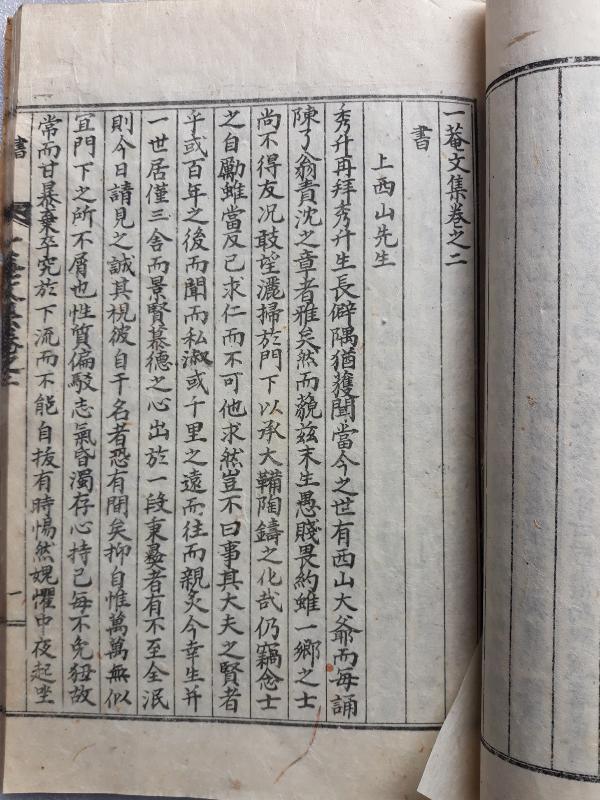 一菴文集卷之二
書
上西山先生
秀升再拜秀升生長僻隅猶獲聞當今之世有西山大爺而每誦
陳了翁責沈之章者雅矣然而藐玆末生愚賤畏約雖一鄉之士
尚不得友况敢望灑掃於門下以承大鞴陶鑄之化哉仍竊念士
之自勵雖當反已求仁而不可他求然豈不曰事其大夫之賢者
乎或百年之後而聞而私淑或千里之遠而往而親炙今幸生并
一世居僅三舍而景賢慕德之心出於一段秉彛者有不至全泯
則今日請見之誠其視彼自干名者恐有間矣抑自惟萬萬無似
宜門下之所不屑也性質偏駁志氣昏濁存心持己每不免狃故
常而甘暴棄卒究於下流而不能自拔有時惕然愧懼中夜起坐
書
一菴文集卷之二
一